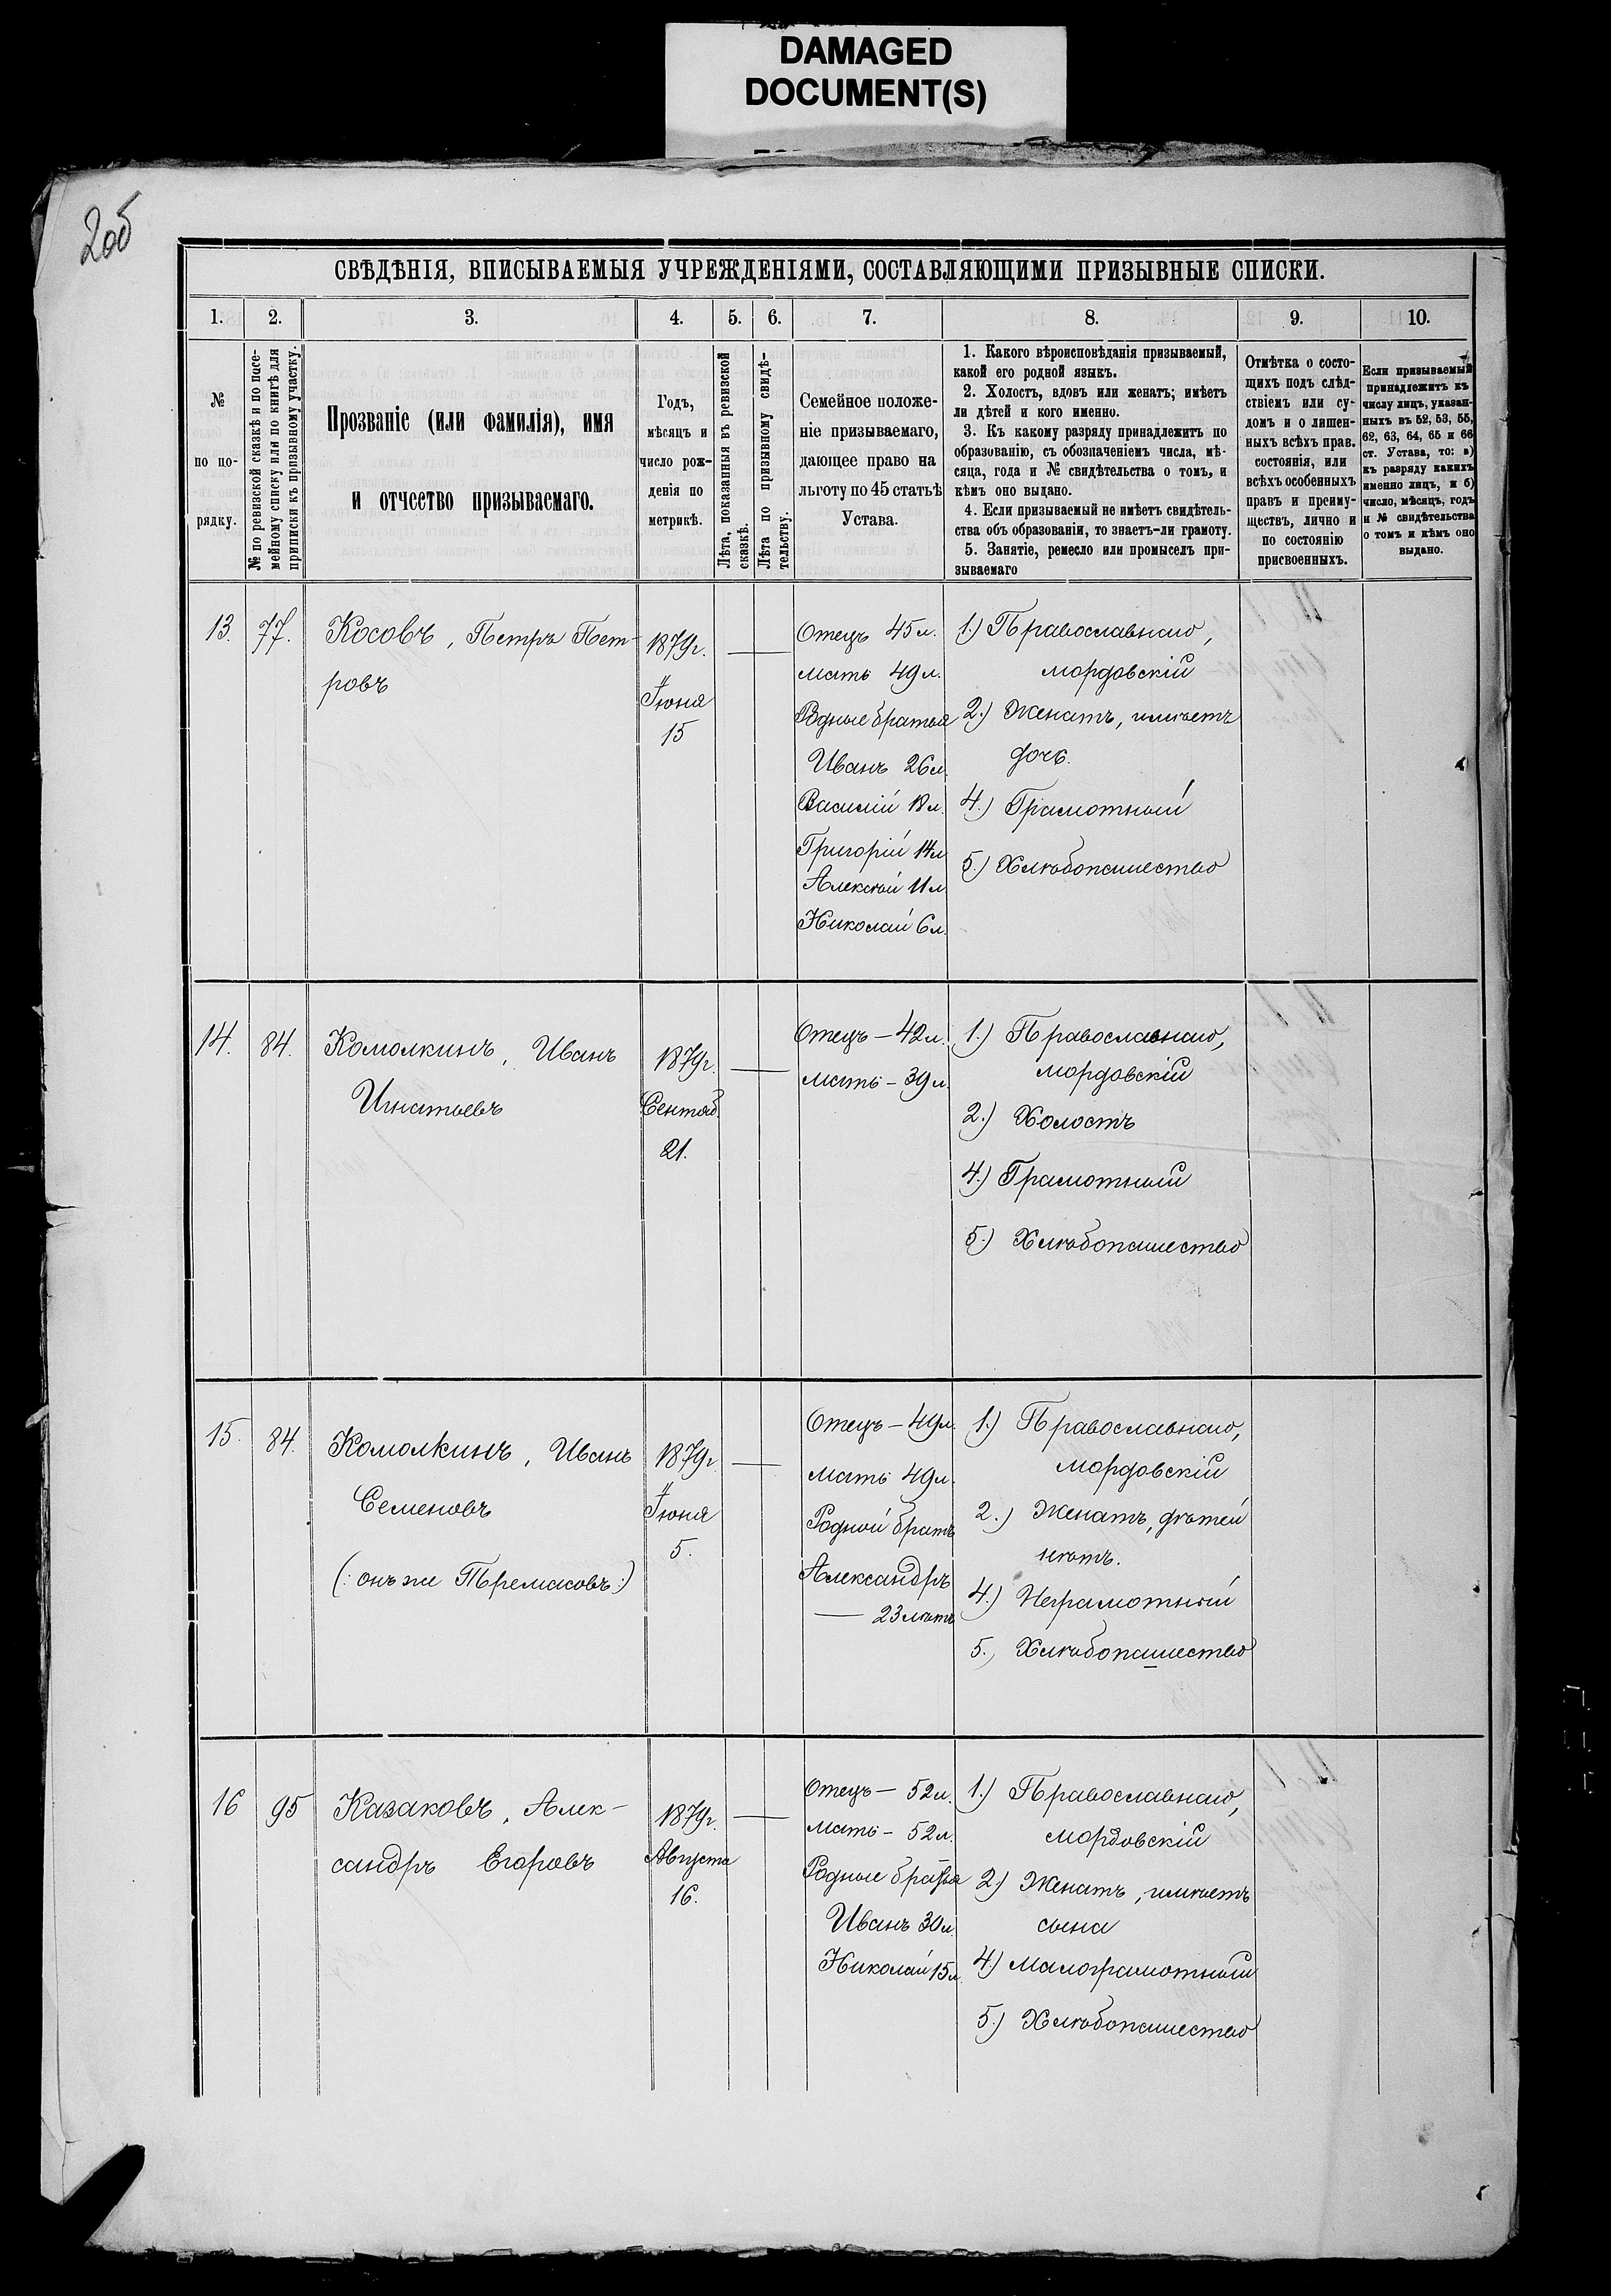 DAMAGED
DOCUMENT(S)
2об
СВѢДѢНІЯ, ВПИСЫВАЕМЫЯ УЧРЕЖДЕНІЯМИ, СОСТАВЛЯЮЩИМИ ПРИЗЫВНЫЕ СПИСКИ.
1. 2. 3. 4. 5. 6. 7. 8. 9. 10.
№
по по-
рядку.
№ по ревизской сказкѣ и по посе-
мейному списку или по книгѣ для
приписки къ призывному участку.
Прозваніе (или фамилія), имя
и отчество призываемаго.
Годъ,
мѣсяцъ и
число рож-
денія по
метрикѣ.
Лѣта, показанныя въ ревизской
сказкѣ.
Лѣта по призывному свидѣ-
тельству.
Семейное положе-
ніе призываемаго,
дающее право на
льготу по 45 статьѣ
Устава.
1. Какого вѣроисповѣданія призываемый,
какой его родной языкъ.
2. Холостъ, вдовъ или женатъ; имѣетъ
ли дѣтей и кого именно.
3. Къ какому разряду принадлежитъ по
образованію, съ обозначеніемъ числа, мѣ-
сяца, года и № свидѣтельства о томъ, и
кѣмъ оно выдано.
4. Если призываемый не имѣетъ свидѣтель-
ства объ образованіи, то знаетъ-ли грамоту.
5. Занятіе, ремесло или промыселъ при-
зываемаго
Отмѣтка о состо-
щихъ подъ слѣд-
ствіемъ или су-
домъ и о лишен-
ныхъ всѣхъ прав.
состоянія, или
всѣхъ особенныхъ
правъ и преиму-
ществъ, лично и
по состоянію
присвоенныхъ.
Если призываемый
принадлежитъ къ
числу лицъ, указан-
ныхъ въ 52, 53, 55,
62, 63, 64, 65 и 66
ст. Устава, то: а)
къ разряду какихъ
именно лицъ, и б)
число, мѣсяцъ, годъ
и № свидѣтельства
о томъ и кѣмъ оно
выдано.
13. 77. Косовъ, Петръ Пет-
ровъ
1879г.
Іюня
15
Отецъ 45 л.
мать 49 л.
Родные братья
Иванъ 26 л.
Василій 18 л.
Григорій 14 л
Алексѣй 11 л
Николай 6 л.
1.) Православнаго,
мордовскій
2.) Женатъ, имѣетъ
дочь.
4.) Грамотный
5.) Хлѣбопашество
14. 84. Комолкинъ, Иванъ
Игнатьевъ
1879г.
Сентяб.
21.
Отецъ — 42 л.
мать — 39 л.
1.) Православнаго,
мордовскій
2.) Холостъ
4.) Грамотный
5.) Хлѣбопашество
15. 84. Комолкинъ, Иванъ
Семеновъ
(: онъ же Тремасовъ :)
1879г
Іюня
5.
Отецъ — 49 л.
мать 49 л.
Родной братъ
Александръ
— 23 лѣтъ
1.) Православнаго,
мордовскій
2.) Женатъ, дѣтей
нѣтъ.
4.) Неграмотный
5.) Хлѣбопашество
16 95 Казаковъ, Алек-
сандръ Егоровъ
1879г.
Августа
16.
Отецъ — 52 л.
мать — 52 л.
Родные братья
Иванъ 30 л.
Николай 15 л.
1.) Православнаго,
мордовскій
2.) Женатъ, имѣетъ
сына
4.) малограмотный
5.) Хлѣбопашество